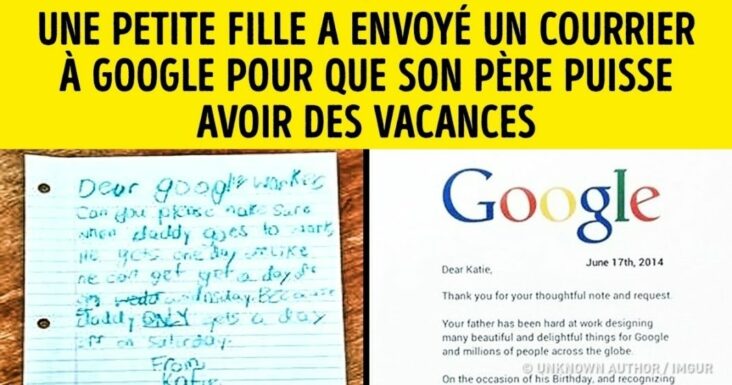 UNE PETITE FILLE A ENVOYÉ UN COURRIER
À GOOGLE POUR QUE SON PÈRE PUISSE
AVOIR DES VACANCES
Dear google worker
Can you please make sure
when daddy goes to work
He gets one day
he can get a day
on wednsday. Because
daddy ONLY gets a day
off on Saturday.
From
Katie
Google
June 17th, 2014
Dear Katie,
Thank you for your thoughtful note and request.
Your father has been hard at work designing
many beautiful and delightful things for Google
and millions of people across the globe.
On the occasion of his Birthday, and recognizing
© UNKNOWN AUTHOR / IMGUR